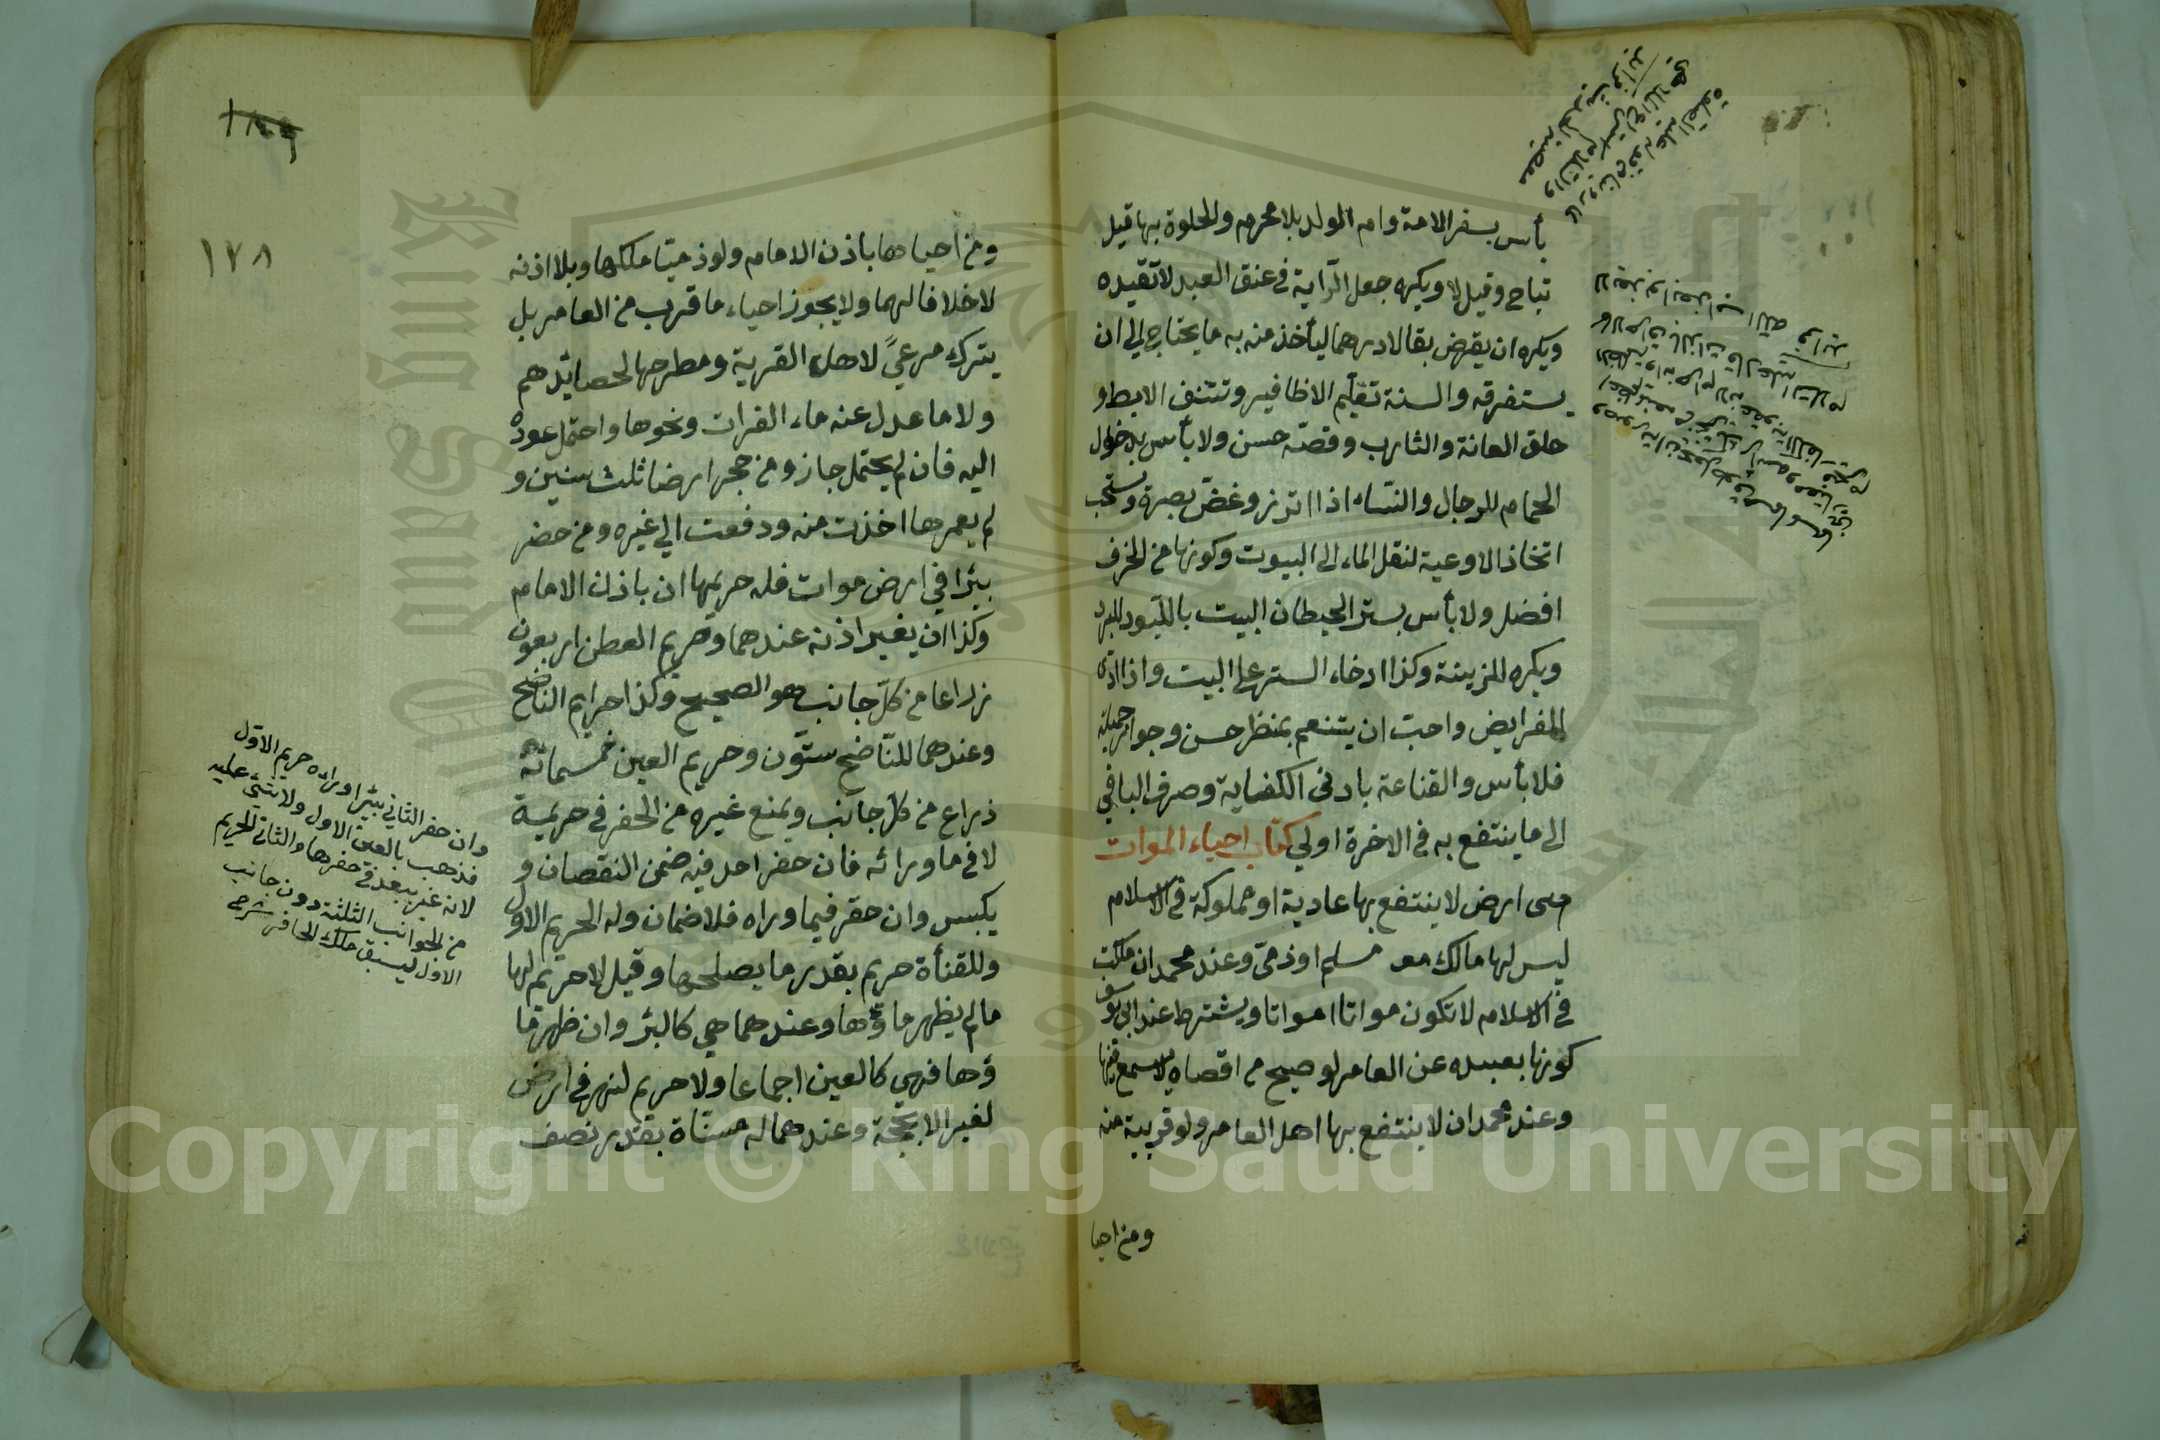 بأس بسفر الامة وام الولد بلا محرم والخلوة بها قيل
تباح وقيل لا ويكره جعل الراية في عنق العبد لا تقيده
ويكره ان يقرض بقالا درهما ليأخذ منه به ما يحتاج الى ان
يستغرقه والسنة تقليم الاظافير ونتف الابط و
حلق العانة والشارب وقصه حسن ولا بأس بدخول
الحمام للرجال والنساء اذا اتزر وغض بصره ويستحب
اتخاذ الاوعية لنقل الماء الى البيوت وكونها من الخزف
افضل ولا بأس بستر الحيطان البيت باللبود للبرد
ويكره للزينة وكذا ارخاء الستر على البيت واذا ادى
الفرايض واحب ان يتنعم بمنظر حسن وجوار جميلة
فلا بأس والقناعة بادنى الكفاية وصرف الباقي
الى ما ينتفع به في الاخرة اولى كتاب احياء الموات
هى ارض لا ينتفع بها عادية او مملوكة في الاسلام
ليس لها مالك مسلم او ذمى وعند محمد ان ملكت
في الاسلام لا تكون مواتا ويشترط عند ابى يوسف
كونها بعيدة عن العامر لو صيح من اقصاه لا يسمع فيها
وعند محمد ان لا ينتفع بها اهل العامر ولو قريبة منه
ومن احيا
١٧٨
ومن احياها باذن الامام ولو ذميا ملكها وبلا اذنه
لا خلافا لهما ولا يجوز احياء ما قرب من العامر بل
يترك مرعىً لاهل القرية ومطرحا لحصائدهم
ولا ما عدل عنه ماء الفرات ونحوها واحتمل عوده
اليه فان لم يحتمل جاز ومن حجر ارضا ثلث سنين و
لم يعمرها اخذت منه ودفعت الى غيره ومن حفر
بيرا في ارض موات فله حريمها ان باذن الامام
وكذا ان بغير اذنه عندهما وحريم العطن اربعون
ذراعا من كل جانب هو الصحيح وكذا حريم الناضح
وعندهما للناضح ستون وحريم العين خمسمائة
ذراع من كل جانب ويمنع غيره من الحفر في حريمه
لا في ما ورائه فان حفر احد فيه ضمن النقصان و
يكبس وان حفر فيما وراه فلا ضمان وله الحريم الاول
وللقناة حريم بقدر ما يصلحها وقيل لا حريم لها
ما لم يظهر ماؤها وعندهما هي كالبئر وان ظهر ما
ؤها فهي كالعين اجماعا ولا حريم لنهر في ارض
لغير الا بحجة وعندهما له مسناة بقدر نصف
وان حفر الثاني بيرا وراءه حريم الاول
فذهب بالعين الاول ولا شئ عليه
لانه غير متعد في حفرها والثاني الحريم
من الجوانب الثلثة دون جانب
الاول لسبق ملك الحافر
Copyright © King Saud University